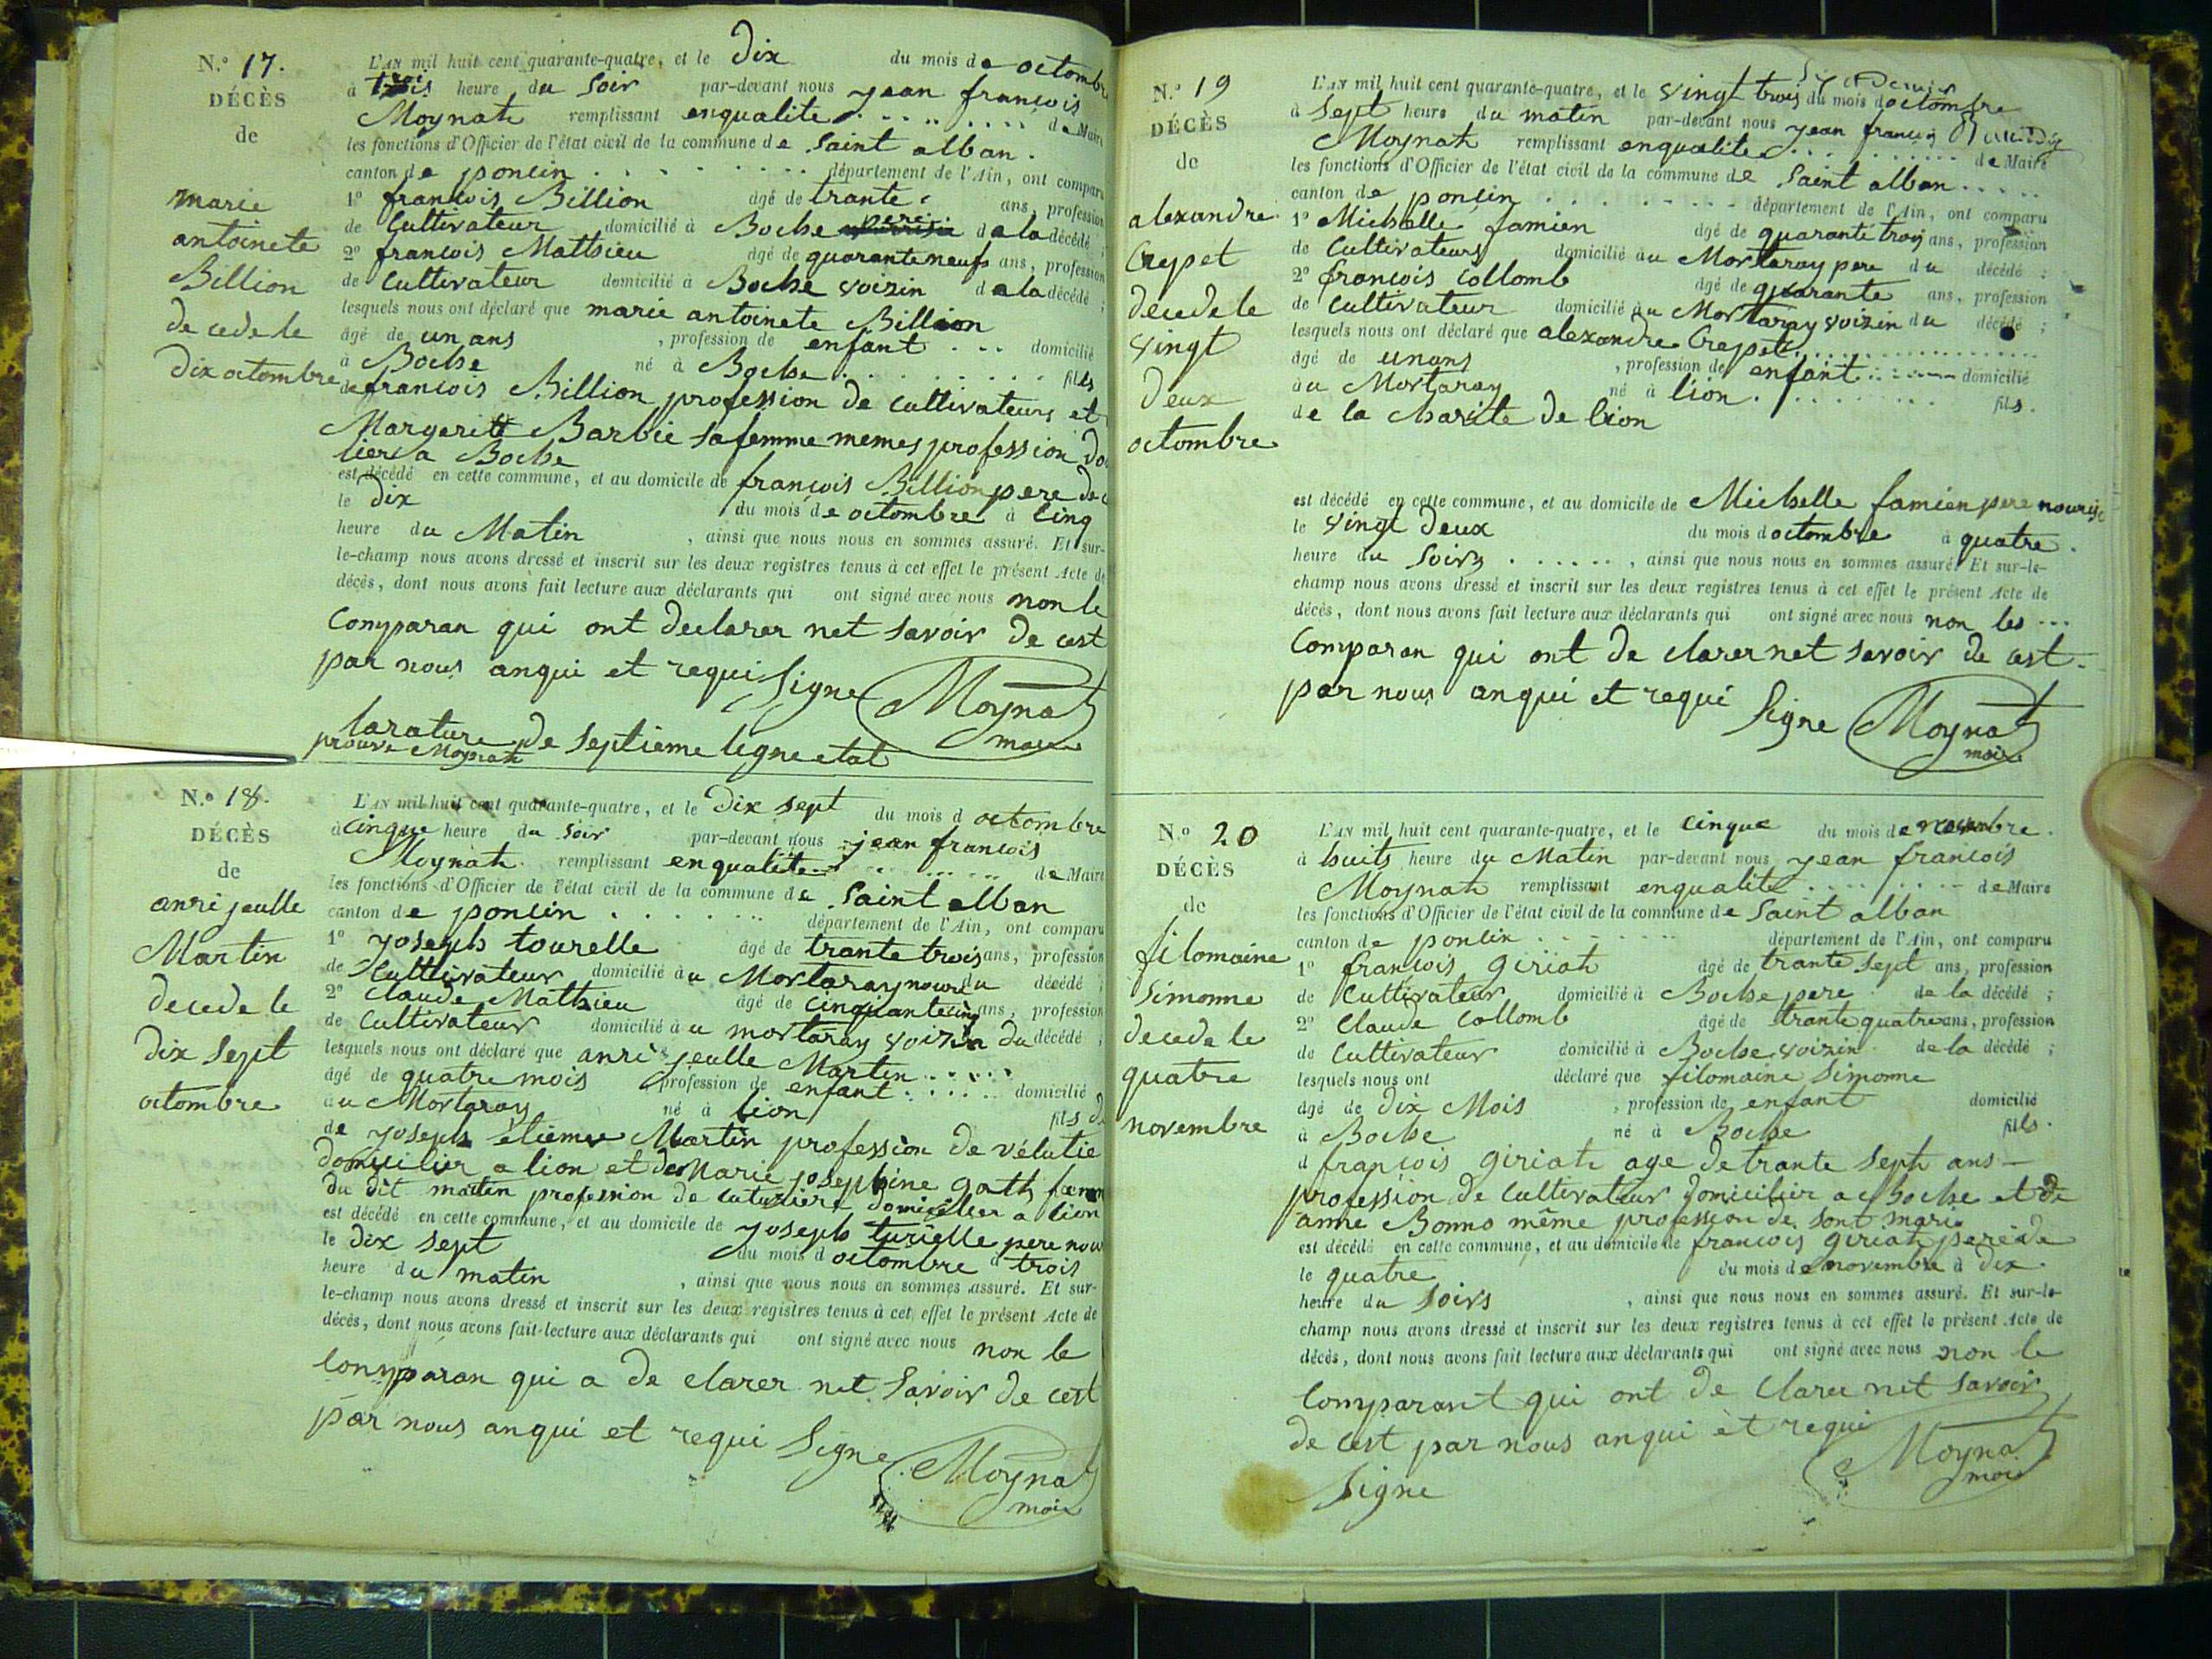 N.º 17.
DÉCÈS
de
marie
antoinete
Billion
decede le
Dix octombre
L'AN mil huit cent quarante-quatre, et le Dix du mois de octombre
à trois heure du soir par-devant nous jean francois
Moynat remplissant enqualite de Maire
les fonctions d'Officier de l'état civil de la commune de saint alban.
canton de poncin département de l'Ain, ont comparu
1º francois Billion âgé de trante ans, profession
de Cultivateur domicilié à Boche pere de la décédé ;
2º francois Mathieu âgé de quarante neuf ans, profession
de Cultivateur domicilié à Boche voizin de la décédé ;
lesquels nous ont déclaré que marie antoinete Billion
âgé de un ans , profession de enfant domicilié
à Boche né à Boche fils
de francois Billion profession de cultivateurs et
Margeritt Barbie sa femme memes profession
lier a Boche
est décédé en cette commune, et au domicile de francois Billion pere de
le dix du mois de octombre à cinq
heure du Matin , ainsi que nous nous en sommes assuré. Et sur-
le-champ nous avons dressé et inscrit sur les deux registres tenus à cet effet le présent Acte de
décès, dont nous avons fait lecture aux déclarants qui ont signé avec nous non le
Comparan qui ont declarer net savoir de cest
par nous anqui et requi Signe Moynat
maire
larature de septieme ligne etat
prouve Moynat
N.º 18.
DÉCÈS
de
anri jeulle
Martin
decede le
dix sept
octombre
L'AN mil huit cent quarante-quatre, et le Dix sept du mois d octombre
à cinque heure du soir par-devant nous jean francois
Moynat remplissant enqualite de Maire
les fonctions d'Officier de l'état civil de la commune de Saint alban
canton de poncin département de l'Ain, ont comparu
1º yoseph tourelle âgé de trante trois ans, profession
de Cultivateur domicilié àu Mortaray nouri du décédé ;
2º Claude Mathieu âgé de cinquante cinq ans, profession
de Cultivateur domicilié àu mortaray voizin du décédé ;
lesquels nous ont déclaré que anri jeulle Martin
âgé de quatre mois profession de enfant domicilié
àu Mortaray né à lion fils d
de yoseph etienne Martin profession de vélutie
domicilier a lion et de Marie josephine gath femm
du dit matin profession de couturiere domicilier a lion
est décédé en cette commune, et au domicile de yoseph turielle pere nou
le dix sept du mois d octombre à trois
heure du matin , ainsi que nous nous en sommes assuré. Et sur-
le-champ nous avons dressé et inscrit sur les deux registres tenus à cet effet le présent Acte de
décès, dont nous avons fait lecture aux déclarants qui ont signé avec nous non le
Comparan qui a de clarer net savoir de cest
par nous anqui et requi Signe Moynat
maire
N.º 19
DÉCÈS
de
alexandre
Crepet
decede le
vingt
deux
octombre
L'AN mil huit cent quarante-quatre, et le vingt trois du mois doctombre
à sept heure du matin par-devant nous jean francois
Moynat remplissant enqualite de Maire
les fonctions d'Officier de l'état civil de la commune de Saint alban
canton de poncin département de l'Ain, ont comparu
1º Michelle famien âgé de quarante trois ans, profession
de Cultivateurs domicilié àu Mortaray pere du décédé ;
2º francois Collomb âgé de quarante ans, profession
de Cultivateur domicilié àu Mortaray voizin du décédé ;
lesquels nous ont déclaré que alexandre Crepet
âgé de un ans , profession de enfant domicilié
àu Mortaray né à lion fils.
de la charite de lion
est décédé en cette commune, et au domicile de Michelle famien pere nouriji
le vingt deux du mois d octombre à quatre
heure du soirs , ainsi que nous nous en sommes assuré. Et sur-le-
champ nous avons dressé et inscrit sur les deux registres tenus à cet effet le présent Acte de
décès, dont nous avons fait lecture aux déclarants qui ont signé avec nous non les
Comparan qui ont de clarer net savoir de cest
par nous anqui et requi Signe Moynat
maire
N.º 20
DÉCÈS
de
filomaine
Simonne
decede le
quatre
novembre
L'AN mil huit cent quarante-quatre, et le cinque du mois de novembre.
à huits heure du Matin par-devant nous jean francois
Moynat remplissant enqualite de Maire
les fonctions d'Officier de l'état civil de la commune de Saint alban
canton de poncin département de l'Ain, ont comparu
1º francois giriat âgé de trante sept ans, profession
de Cultivateur domicilié à Boche pere de la décédé ;
2º Claude Collomb âgé de trante quatre ans, profession
de Cultivateur domicilié à Boche voizin de la décédé ;
lesquels nous ont déclaré que filomaine Simonne
âgé de dix Mois , profession de enfant domicilié
à Boche né à Boche fils.
d francois giriat age de trante sept ans
profession de Cultivateur domicilier a Boche et de
anne Bonno même profession de sont mari
est décédé en cette commune, et au domicile de francois giriat pere de
le quatre du mois de novembre à dix
heure du soirs , ainsi que nous nous en sommes assuré. Et sur-le
champ nous avons dressé et inscrit sur les deux registres tenus à cet effet le présent Acte de
décès, dont nous avons fait lecture aux déclarants qui ont signé avec nous non le
Comparant qui ont de clarer net savoir
de cest par nous anqui et requi
Signe Moynat
maire